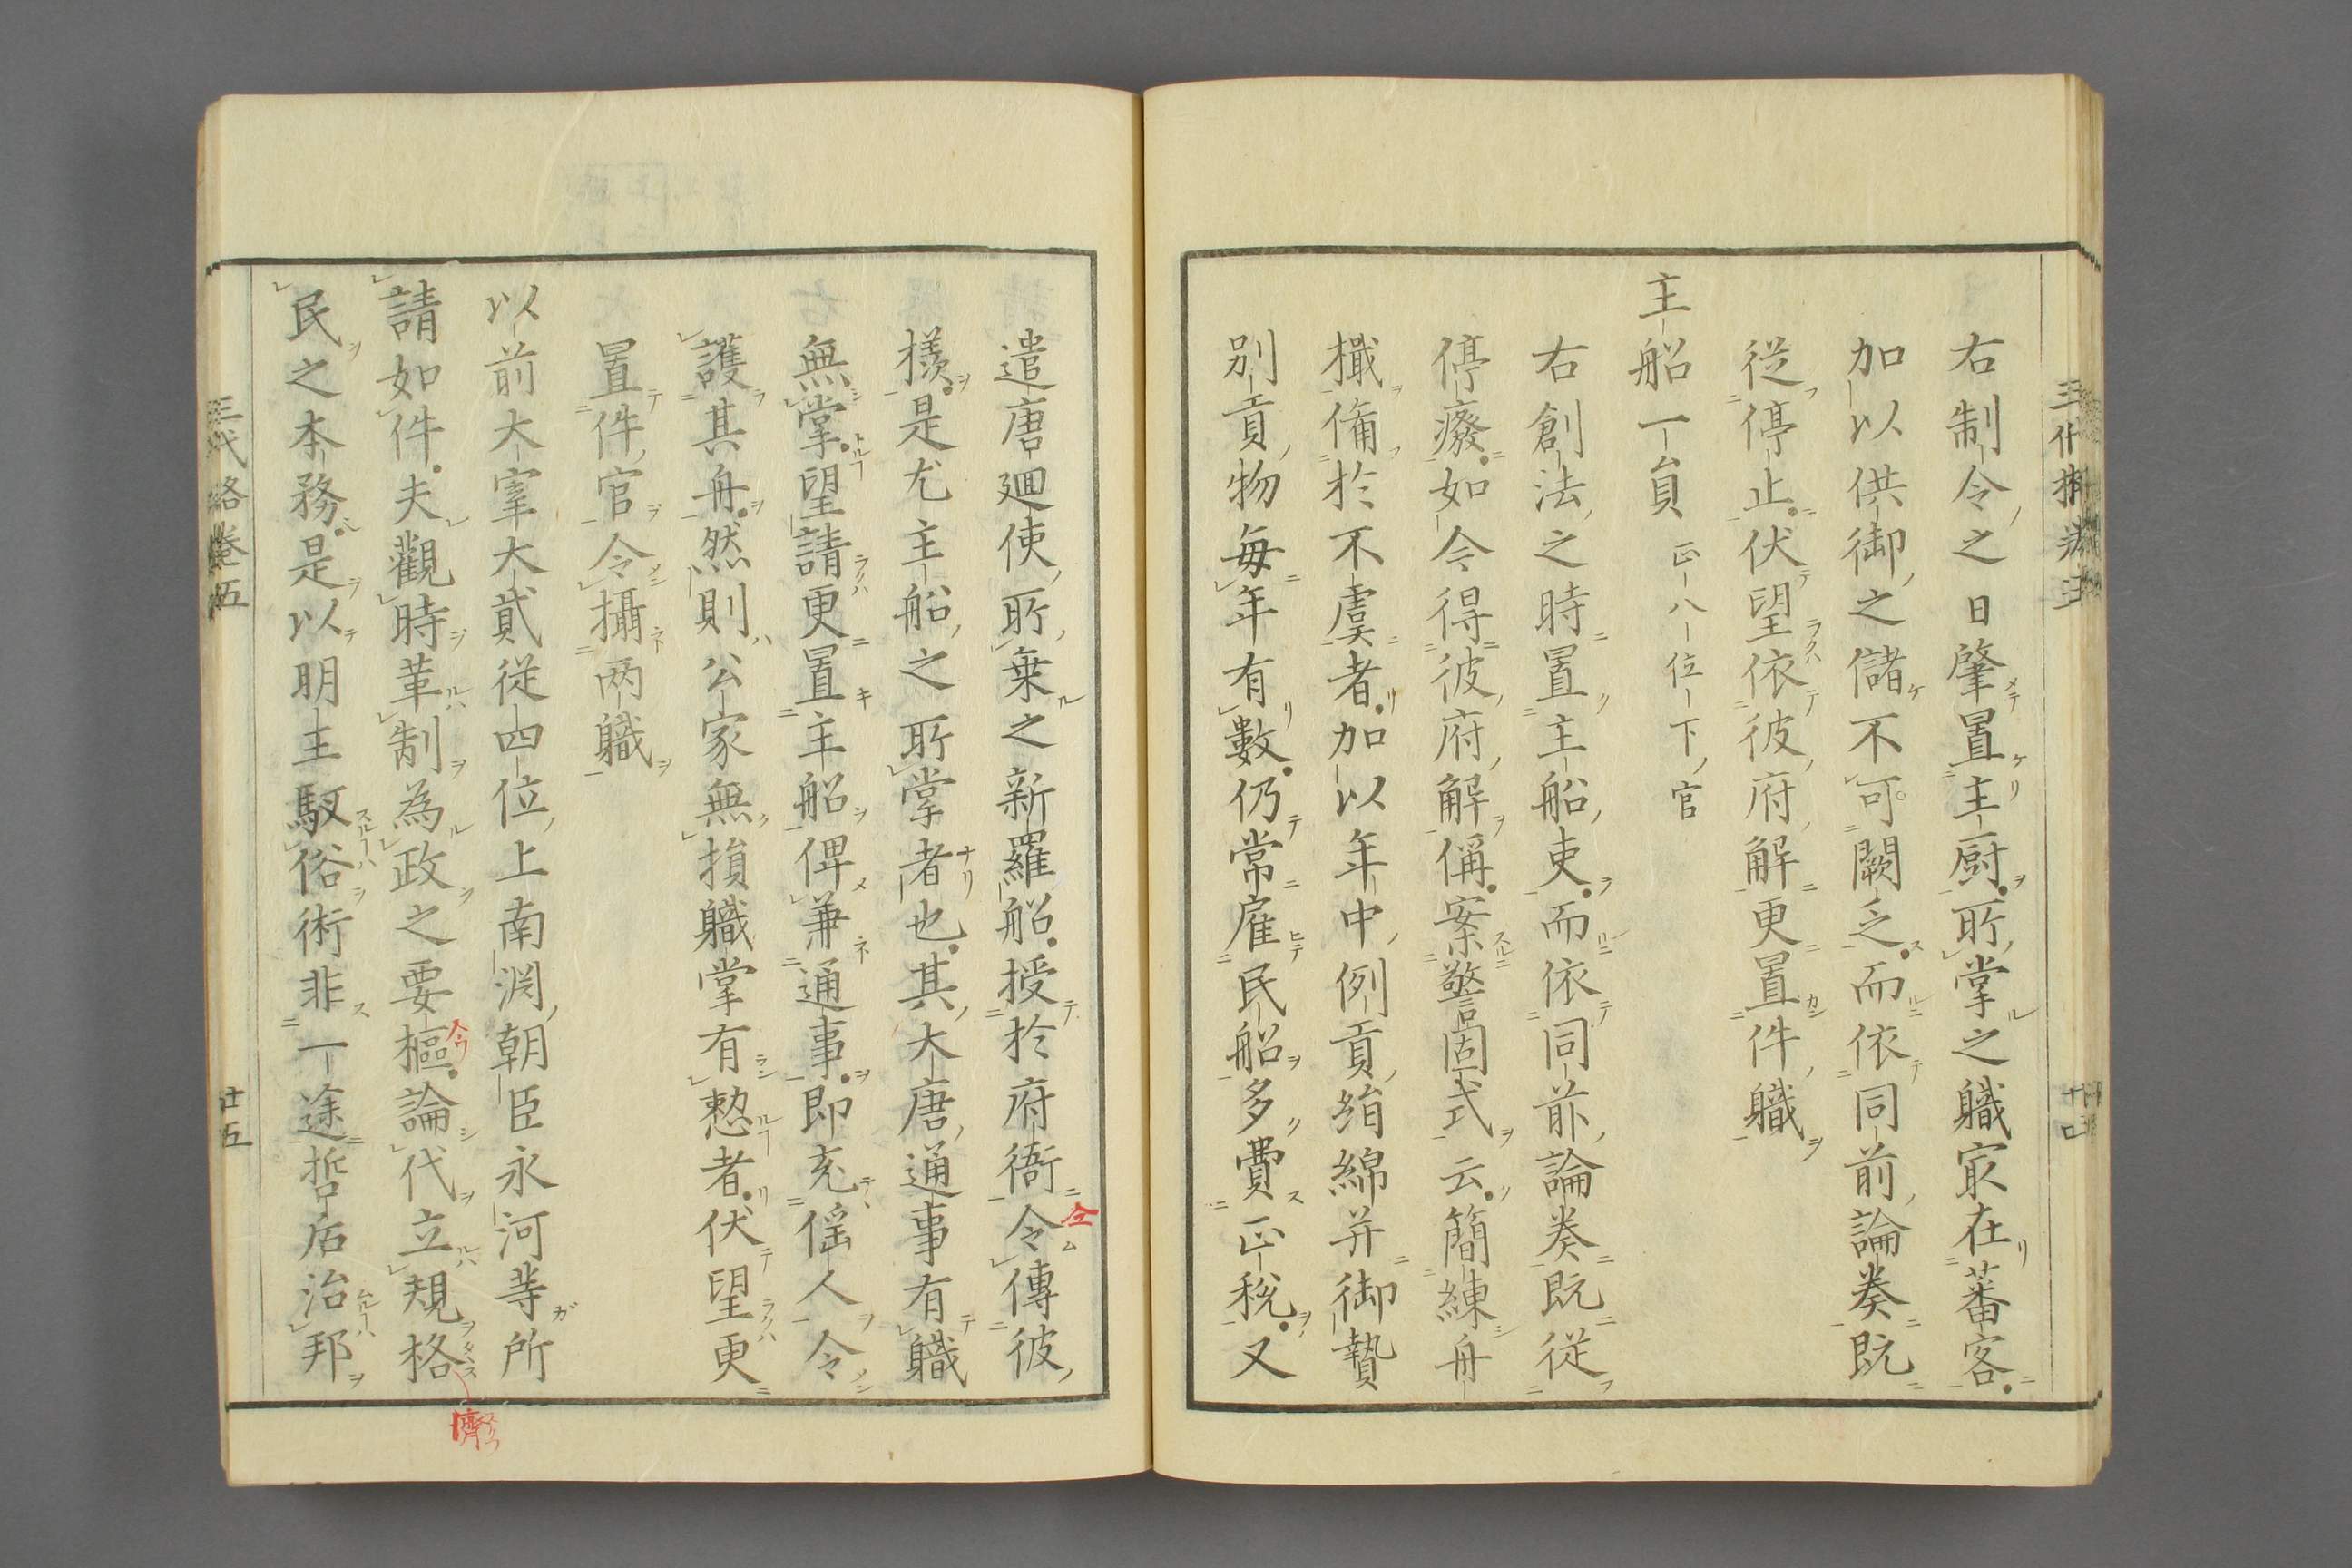 右制令之日肇置主厨所掌之職㝡在蕃客
加以供御之儲不可闕乏而依同前論奏既
從停止伏望依彼府解更置件職
主船一員 正八位下官
右創法之時置主船吏而依同前論奏既從
停癈如今得彼府解偁案警固式云簡練舟
檝備於不虞者加以年中例貢絹綿并御贄
別貢物毎年有數仍常雇民船多費正税又
遣唐廻使所乗之新羅船授於府衙令傳彼
様是尤主船之所掌者也其大唐通事有職
無掌望請更置主船俾兼通事即充傜人令
護其舟然則公家無損職掌有懃者伏望更
置件官令攝两職
以前大宰大貳従四位上南淵朝臣永河等所
請如件夫觀時革制為政之要樞論代立規格
民之本務是以明主馭俗術非一途哲后治邦
三代格巻五
廿五
濟